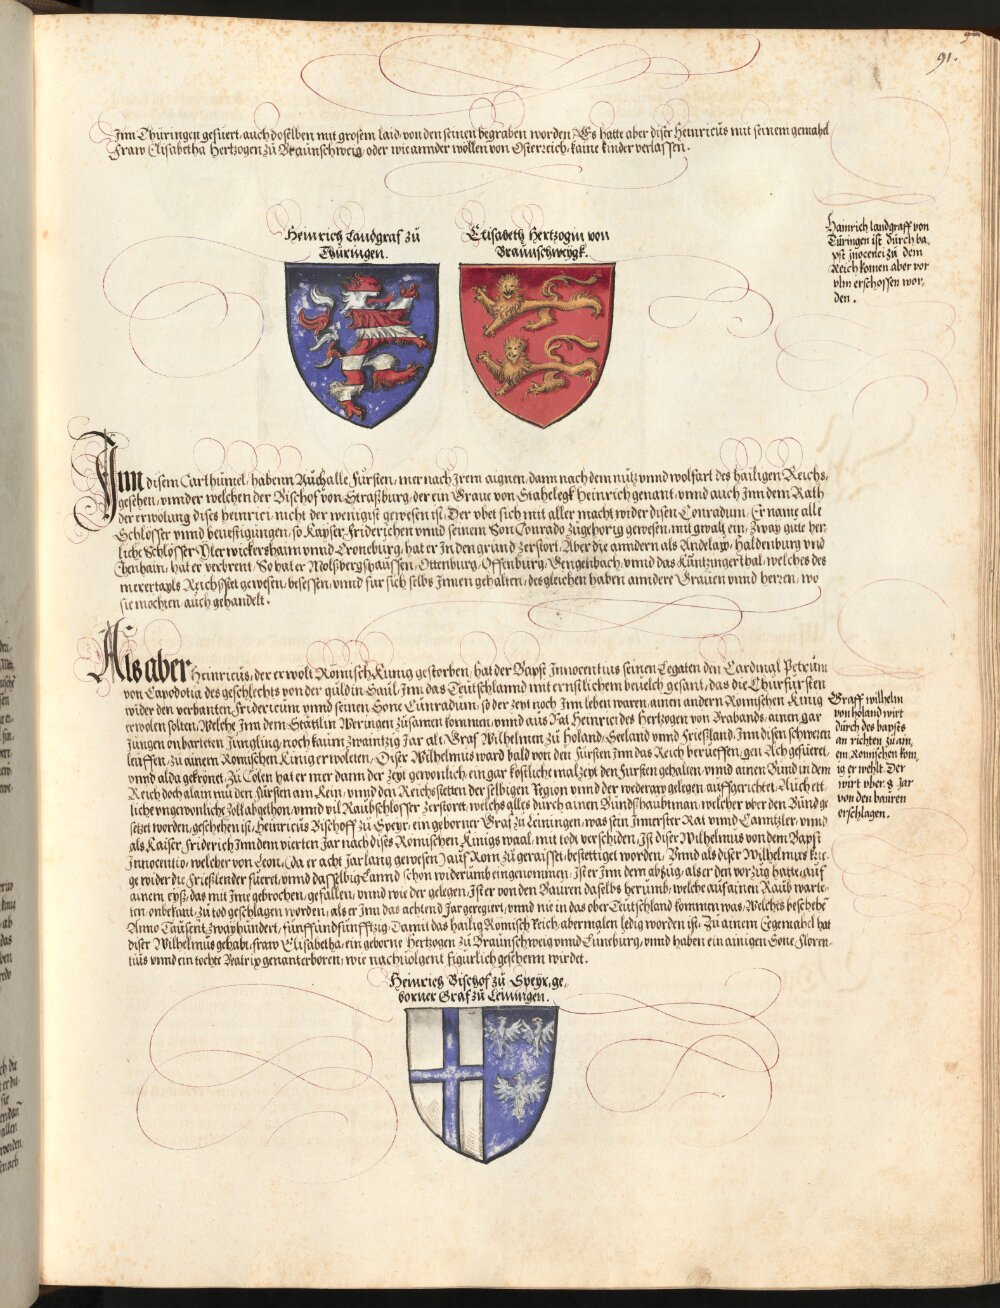 91.
Inn Thüringen gefüert, auch doselben mit grosem laid von den seinen begraben worden, Es hatte aber diser Heinricüs mit seinem gemahel
Fraw Elisabetha Hertzogen zü Braünschweig, oder wie annder wöllen von Österreich, kaine kinder verlassen.
Heinrich Lanndgraf zü
Thüringen.
Elisabeth Hertzogin von
Braünschweygk.
Hainrich landgraff von
Türingen ist dürch ba,
pst jnocenci zü dem
Reich komen aber vor
vlm erschossen wor,
den.
Inn disem Carlhümel, habenn Aüch alle Fürsten, mer nach Irem aignen, dann nach dem nütz vnnd wolfart des hailigen Reichs,
gesehen, vnnder welchen der Bischof von Straßbürg, der ein Graue von Stahelegk Heinrich genant, vnnd auch Inn dem Rath
der erwölung dises Heinrici, nicht der wenigist gewesen ist, Der vbet sich mit aller macht wider disen Conradum, Er name alle
Schlösser vnnd beuestigüngen, so Kayser Friderichen vnnd seinem Son Conrado zügehörig gewesen, mit gwalt ein, Zway güte herz
liche Schlösser, Yler wickersham vnnd Croneburg, hat er In den gründ zerstört, Aber die anndern als Andelaw, Haldenburg vnd
Ehenhain, hat er verbrent, So hat er Molßberg, haussen, Ottenbürg, Offenbürg, Gengenbach, vnnd das Küntzingerthal, welches des
merertayls Reichsstett gewesen, besessen, vnnd für sich selbs Innen gehalten, desgleichen haben anndere Grauen vnnd herren, wo
sie mochten auch gehandelt.
Als aber Heinricüs, der erwölt Römisch Künig gestorben, hat der Bapst Innocentius seinen Legaten den Cardinal Petrüm
von Capodotia des geschlechts von der güldin Saül, Inn das Teütschlannd mit ernstlichem beuelch gesant, das die Chürfürsten
wider den verbanten Fridericum vnnd seinen Sone Cünradüm, so der zeyt noch Inn leben waren, ainen andern Römischen Künig
erwölen solten, Welche Inn dem Stättlin Weringen züsamen kommen, vnnd aüs Rat Heinrici des Hertzogen von Brabannds, ainen gar
Jüngen onbärteten Jüngling, noch kaum zwaintzig Jar alt, Graf Wilhelmen zü Holand, Seeland vnnd Frießland, Inn disen schweren
leüffen, zü ainem Römischen Künig erwöleten, Diser Wilhelmus ward bald von den Fürsten Inn das Reich berüeffen, gen Ach gefüeret,
vnnd alda gekrönet, Zü Cölen hat er mer dann der zeyt gewonlich ein gar köstliche malzeyt den Fürsten gehalten, vnnd ainen Bünd in dem
Reich doch alain mit den Fürsten am Rein, vnnd den Reichsstetten der selbigen Region vnnd der wederaw gelegen auffgerichtet, Aüch ett,
liche vngewonliche Zöll abgethon, vnnd vil Raübschlösser Zerstöret, welchs alles dürch ainen Bündßhaubtman, welcher vber den Bünd ge
setzt worden, geschehen ist, Heinricüs Bischoff zü Speyr, ein geborner Graf zü Leiningen, was sein Innerster Rat vnnd Canntzler, vnnd
als Kaiser Friderich Inn dem vierten Jar nach dises Römischen Künigs waal, mit todt verschiden, Ist diser Wilhelmus von dem Bapst
Innocentio, welcher von Leon, (da er acht Jar lang gewesen) aüf Rom zü geraisset, bestettiget worden, Vnnd als diser Wilhelmus krie,
ge wider die Frießlender füeret, vnnd dasselbig Lannd schon widerumb eingenommen, Ist er Inn dem abzüg, als er den vorzüg hatte, aüf
ainem eyß, das mit Ime gebrochen, gefallen, vnnd wie der gelegen, Ist er von den Bauren daselbs herümb, welche aüf ainen Raüb warte,
ten, onbekant, zü tod geschlagen worden, als er Inn das achtend Jar geregiert, vnnd nie in das ober Teütschland kommen was, Welches beschehe
Anno Taüsent, zwayhündert, fünffundfünfftzig, Damit das hailig Römisch Reich abermalen ledig worden ist, Zü ainem Eegemahel hat
diser Wilhelmus gehabt, fraw Elisabetha, ein geborne Hertzogen zü Braünschweig vnnd Lüneburg, vnnd haben ein ainigen Sone Floren,
tiüs vnnd ein tochter Beatrix genant erboren, wie nachuolgent figürlich gesehenn würdet.
Graff wilhelm
von holand wirt
dürch des bapsts
an richten zü ain,
em Römischen kün,
ig er wehlt. Der
wirt vber. 8. Jar
von den bauren
erschlagen.
Heinrich Bischof zü Speyr, ge,
borner Graf zü Leiningen.